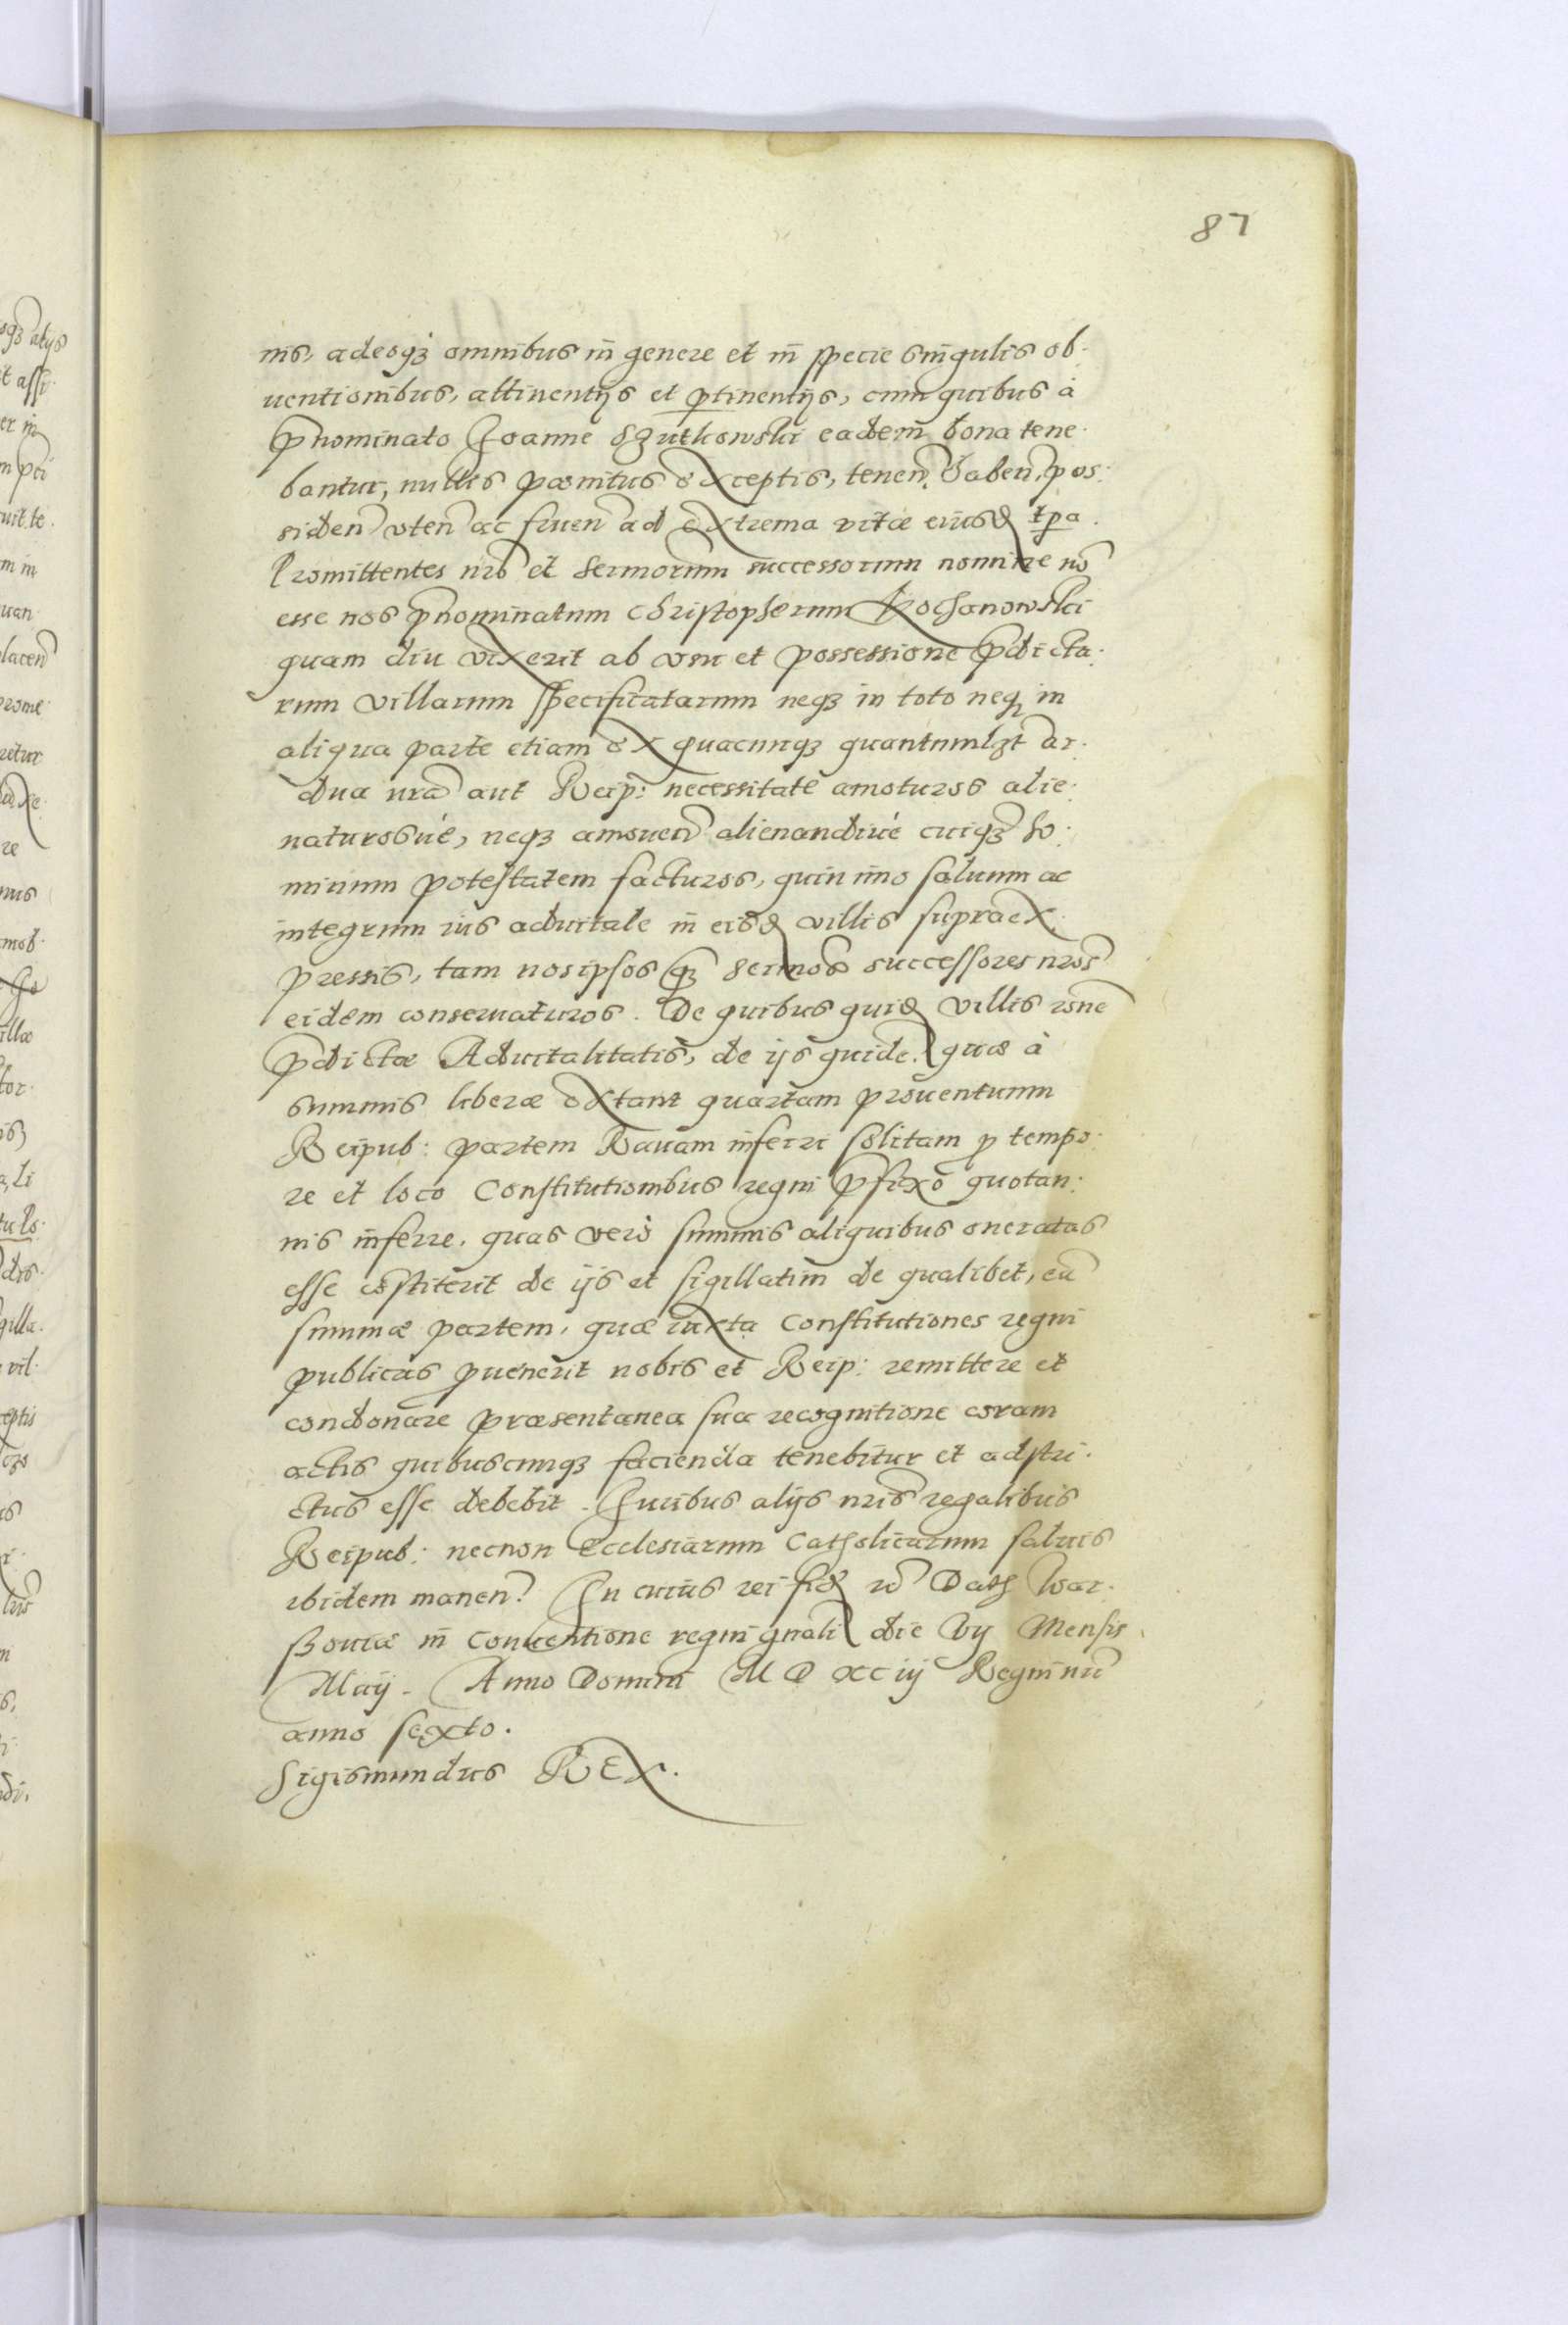 87
nis, adeoq3 omnibus in genere et in specie singulis ob-
uentionibus, attinentijs et ptinentijs, cum quibus à
pnominato Joanne Szutkowski eadem bona tene-
bantur, nullis poenitus exceptis, tenen. haben. pos-
siden uten ac fruen ad extrema vitae eiusd tpa.
Promittentes nro et Sermorum successorum nomine no
esse nos pnominatum Christopherum Kochanowski
quam diu vixerit ab vsu et possessione pdicta-
rum villarum specificatarum neq3 in toto neq3 in
aliqua parte etiam ex quacunq3 quantumlzt ar-
dua nra aut Reip: necessitate amoturos alie-
naturosue, neq3 amouen alienandiue cuiq3 ho-
minum potestatem facturos, quin imo saluum ac
integrum ius aduitale in eisd villis supraex-
pressis, tam nos ipsos q3 Sermos successores nros
eidem conseruaturos. De quibus quid villis rone
pdictae Aduitalitatis, de ijs quide. quae à
summis liberae extant quartam prouentuum
Reipub: partem Rauam inferri solitam p tempo-
re et loco Constitutionibus regni pfixo quotan-
nis inferre. quas verò summis aliquibus oneratas
esse costiterit de ijs et sigillatim de qualibet, ea
summae partem, quae iuxta Constitutiones regni
publicas puenerit nobis et Reip: remittere et
condonare praesentanea sua recognitione coram
actis quibuscunq3 facienda tenebitur et adstri-
ctus esse debebit. Juribus alijs nris regalibus
Reipub: necnon Ecclesiarum Catholicarum saluis
ibidem manen. In cuius rei fid rc Dath War-
ßouiae in Conuentione regni gnali die Vij Mensis
Maij. Anno Domini M D XC iij Regni nri
anno sexto.
Sigismundus REX.